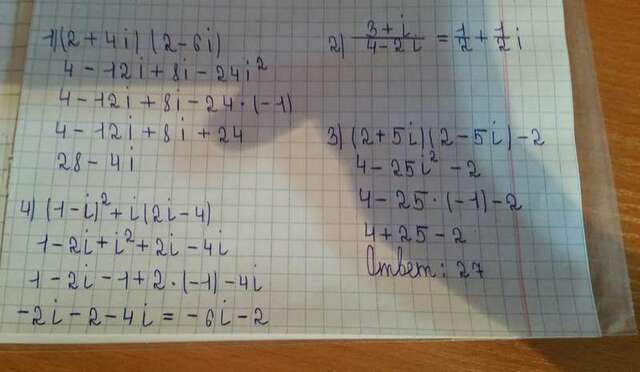 1) (2 + 4i) (2 - 6i)
4 - 12i + 8i - 24i²
4 - 12i + 8i - 24 · (-1)
4 - 12i + 8i + 24
28 - 4i
2) (3 + i)/(4 - 2i) = 1/2 + 1/2 i
3) (2 + 5i) (2 - 5i) - 2
4 - 25i² - 2
4 - 25 · (-1) - 2
4 + 25 - 2
Ответ: 27
4) (1 - i)² + i (2i - 4)
1 - 2i + i² + 2i - 4i
1 - 2i - 1 + 2 · (-1) - 4i
-2i - 2 - 4i = -6i - 2